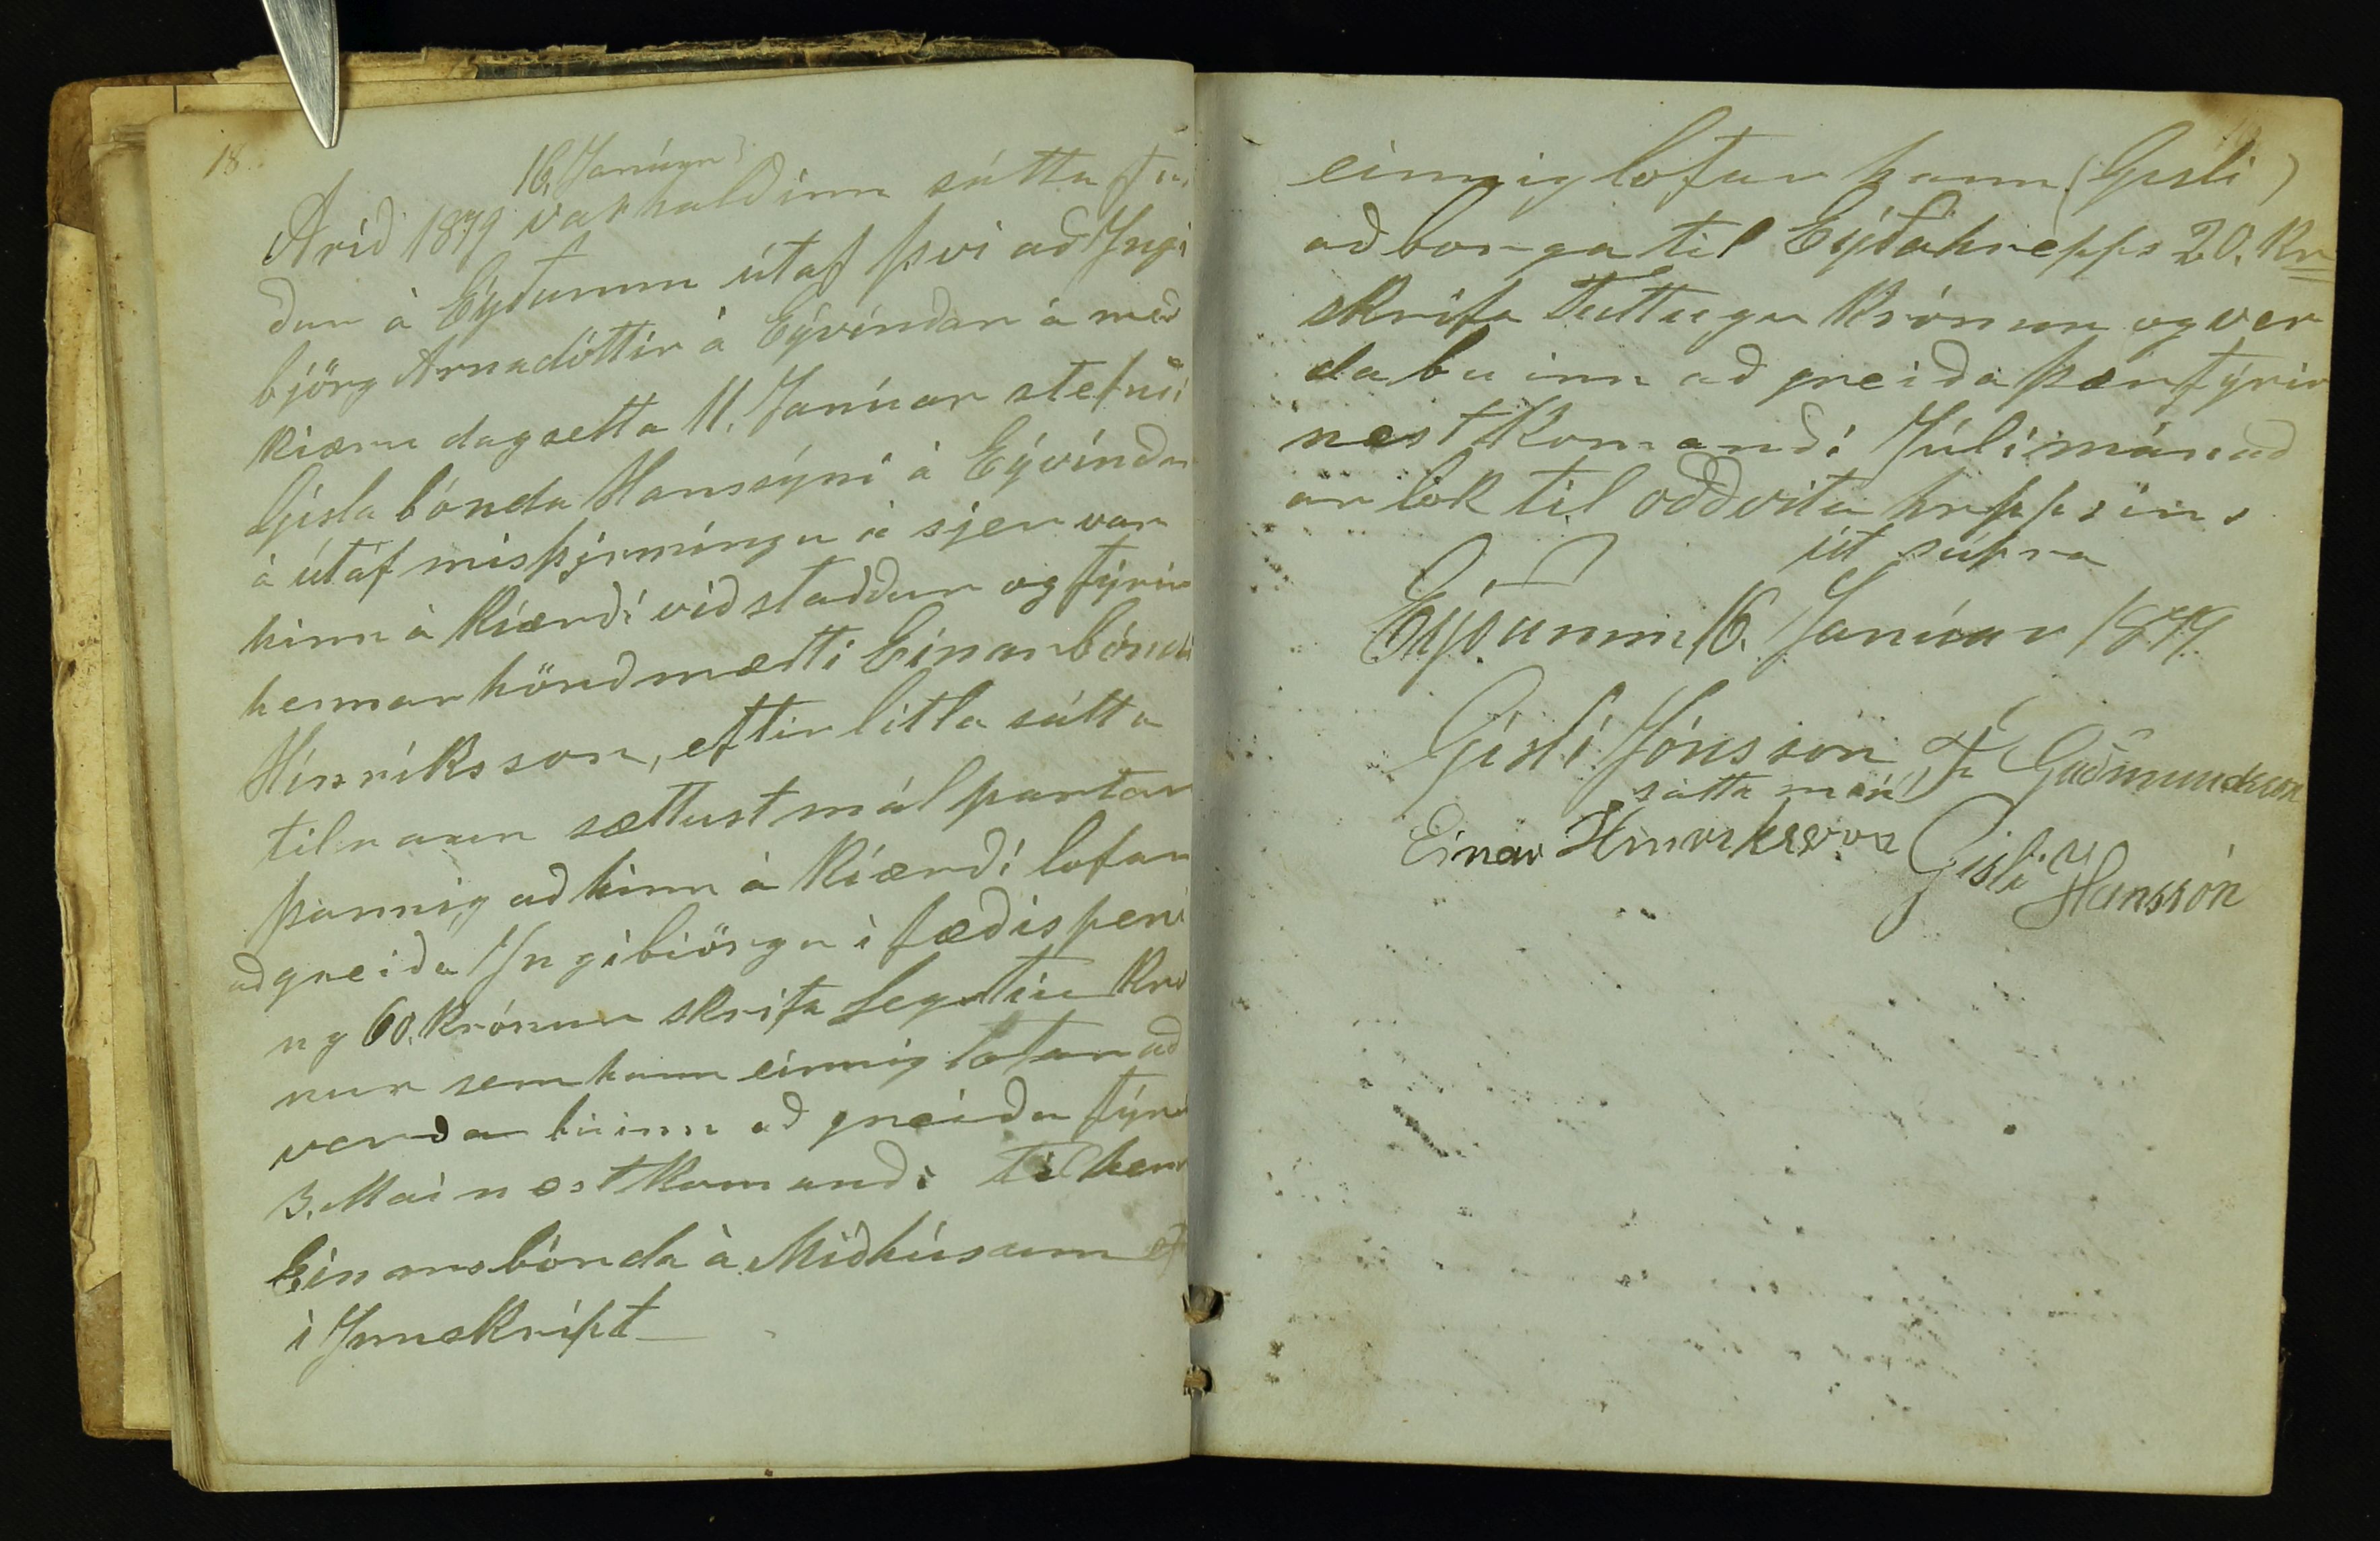 18.
16, Janúar
Árið 1879 var haldinn sátta fu
ður á Eyðumm útaf því að Ingi
björg Arnadóttir á Eývindar á með
kiæru dagsetta 11. Janúar stefnði
Gísla bónda Hanssýni á Eývindar
á útaf misþirmíngu á sjer var
hinn á kiærði við staddur og fýrir
hennar hönd mætti Einar bóndi
Hinriksson, eftir litla sátta
tilraun sættust málpartar
þannig að hinn á kiærði lofar
að greiða Ingibiörgu í fæðispeni
ng 60. krónur skrifa Segstiu kró
nur sem hann einnig lofar að
verða búinn að greiða fýrir
3. Mai næstkomandi til henr
Einars bónda á Miðhúsum ef
i Innskript
einnig lofar hann (Gisli)
að borga til Eýðahrepps 20. Kr
skrifa Tuttugu krónur og ver
da buinn að greiða þær fýrir
næstkomandi Júlímánað
ar lok til oddvita hreppsins
út súpra
Eýðumm 16. Janúar 1879.
Gísli Jónsson Þ Guðmundsson
sátta menn
Einar Hinriksson Gisli Hansson